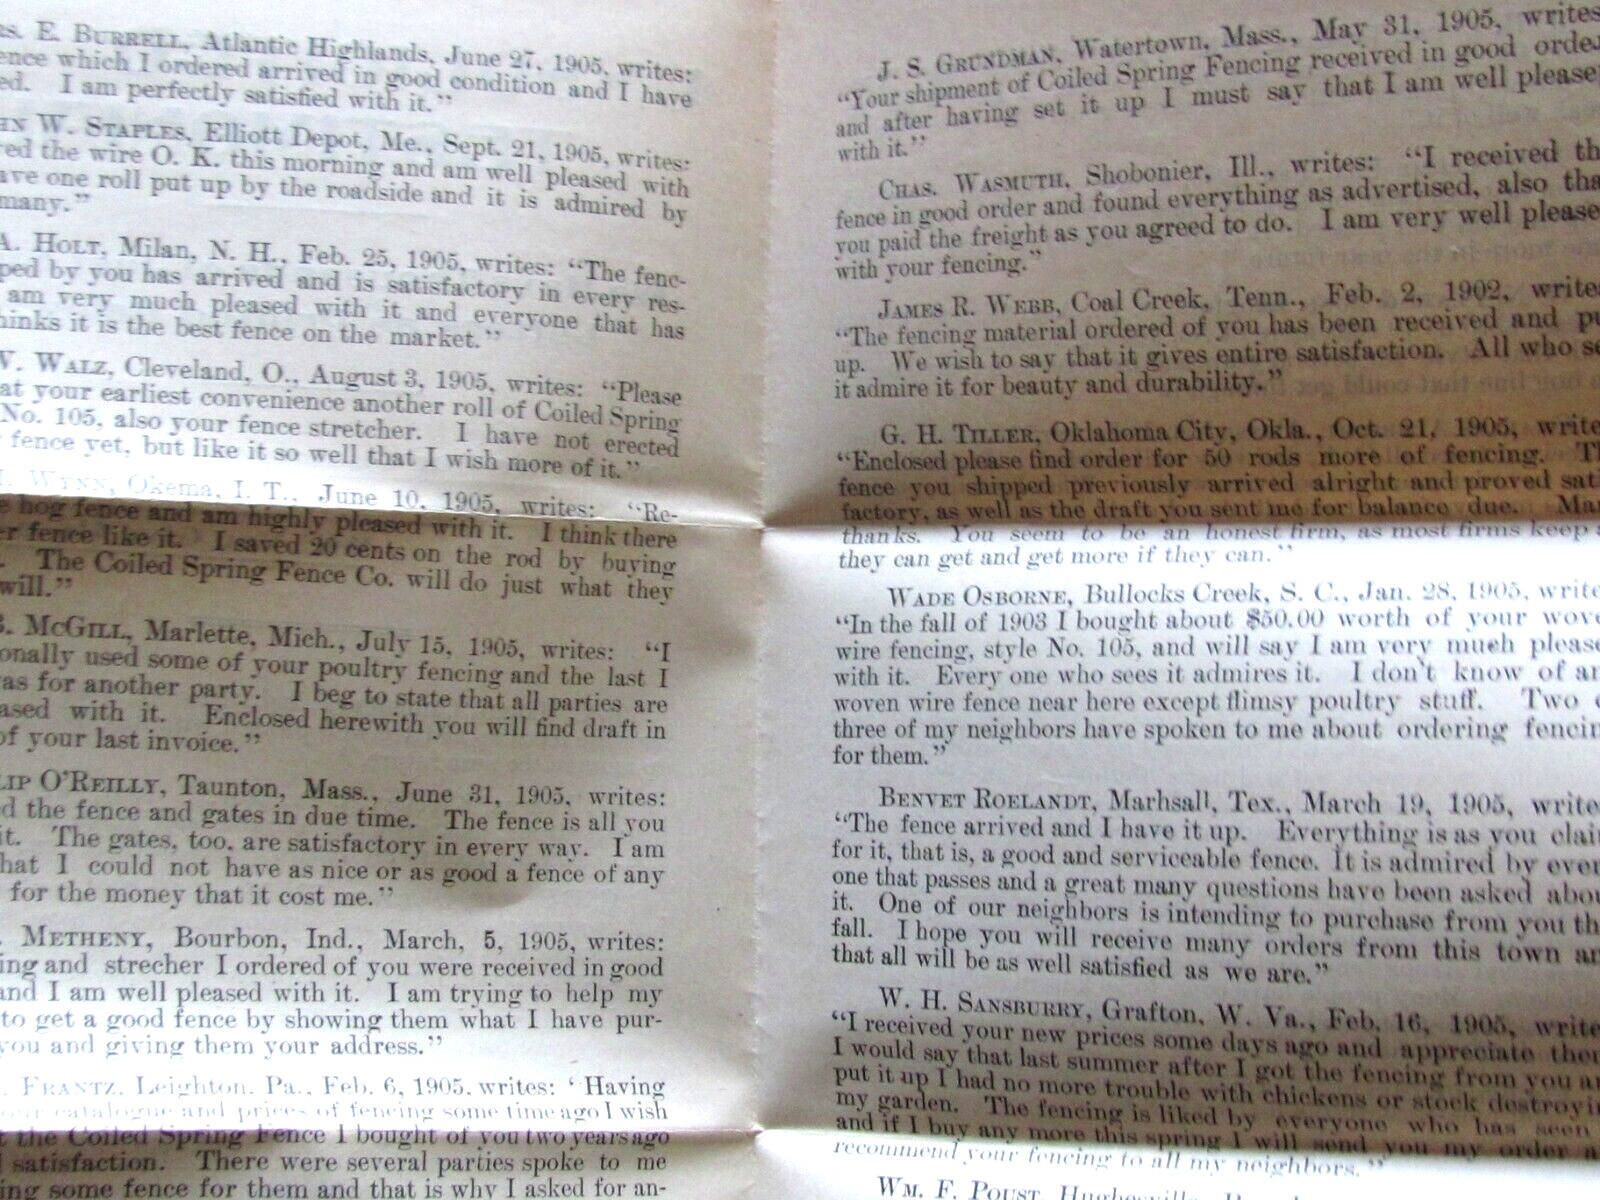 E. BURRELL, Atlantic Highlands, June 27, 1905, writes:
which I ordered arrived in good condition and I have
I am perfectly satisfied with it."
W. STAPLES, Elliott Depot, Me., Sept. 21, 1905, writes:
the wire O. K. this morning and am well pleased with
one roll put up by the roadside and it is admired by
many."
A. HOLT, Milan, N. H., Feb. 25, 1905, writes: "The fenc-
by you has arrived and is satisfactory in every res-
am very much pleased with it and everyone that has
it is the best fence on the market."
WALZ, Cleveland, O., August 3, 1905, writes: "Please
at your earliest convenience another roll of Coiled Spring
No. 105, also your fence stretcher. I have not erected
fence yet, but like it so well that I wish more of it."
WYNN, Okema, I. T., June 10, 1905, writes: "Re-
hog fence and am highly pleased with it. I think there
fence like it. I saved 20 cents on the rod by buying
The Coiled Spring Fence Co. will do just what they
will."
McGILL, Marlette, Mich., July 15, 1905, writes: "I
used some of your poultry fencing and the last I
for another party. I beg to state that all parties are
with it. Enclosed herewith you will find draft in
of your last invoice."
O'REILLY, Taunton, Mass., June 31, 1905, writes:
the fence and gates in due time. The fence is all you
it. The gates, too, are satisfactory in every way. I am
that I could not have as nice or as good a fence of any
for the money that it cost me."
METHENY, Bourbon, Ind., March, 5, 1905, writes:
and strecher I ordered of you were received in good
and I am well pleased with it. I am trying to help my
to get a good fence by showing them what I have pur-
you and giving them your address."
FRANTZ, Leighton, Pa., Feb. 6, 1905, writes: 'Having
catalogue and prices of fencing some time ago I wish
the Coiled Spring Fence I bought of you two years ago
satisfaction. There were several parties spoke to me
some fence for them and that is why I asked for an-
J. S. GRUNDMAN, Watertown, Mass., May 31, 1905, writes
"Your shipment of Coiled Spring Fencing received in good orde
and after having set it up I must say that I am well please
with it."
CHAS. WASMUTH, Shobonier, Ill., writes: "I received th
fence in good order and found everything as advertised, also tha
you paid the freight as you agreed to do. I am very well please
with your fencing."
JAMES R. WEBB, Coal Creek, Tenn., Feb. 2, 1902, write
"The fencing material ordered of you has been received and pu
up. We wish to say that it gives entire satisfaction. All who se
it admire it for beauty and durability."
G. H. TILLER, Oklahoma City, Okla., Oct. 21, 1905, write
"Enclosed please find order for 50 rods more of fencing. Th
fence you shipped previously arrived alright and proved sat
factory, as well as the draft you sent me for balance due. Man
thanks. You seem to be an honest firm, as most firms keep a
they can get and get more if they can."
WADE OSBORNE, Bullocks Creek, S. C., Jan. 28, 1905, write
"In the fall of 1903 I bought about $50.00 worth of your wov
wire fencing, style No. 105, and will say I am very much please
with it. Every one who sees it admires it. I don't know of an
woven wire fence near here except flimsy poultry stuff. Two
three of my neighbors have spoken to me about ordering fencin
for them."
BENVET ROELANDT, Marhsall, Tex., March 19, 1905, write
"The fence arrived and I have it up. Everything is as you clai
for it, that is, a good and serviceable fence. It is admired by ever
one that passes and a great many questions have been asked abou
it. One of our neighbors is intending to purchase from you th
fall. I hope you will receive many orders from this town an
that all will be as well satisfied as we are."
W. H. SANSBURRY, Grafton, W. Va., Feb. 16, 1905, write
"I received your new prices some days ago and appreciate the
I would say that last summer after I got the fencing from you an
put it up I had no more trouble with chickens or stock destroyi
my garden. The fencing is liked by everyone who has seen
and if I buy any more this spring I will send you my order a
recommend your fencing to all my neighbors."
WM. F. POUST, Hughesville,